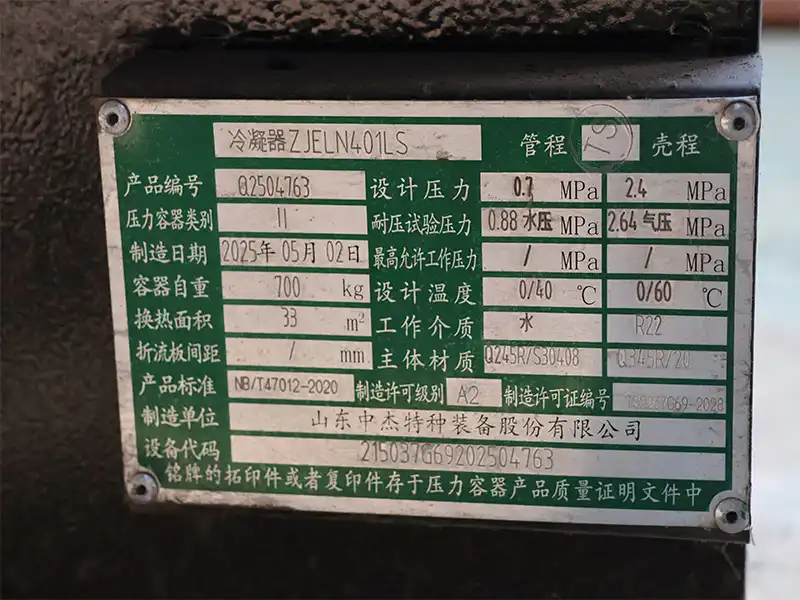 冷凝器ZJELN401LS 管程 TS 壳程
产品编号 Q2504763 设计压力 0.7 MPa 2.4 MPa
压力容器类别 II 耐压试验压力 0.88 水压 MPa 2.64 气压 MPa
制造日期 2025年 05月 02日 最高允许工作压力 / MPa / MPa
容器自重 700 kg 设计温度 0/40 ℃ 0/60 ℃
换热面积 33 m² 工作介质 水 R22
折流板间距 / mm 主体材质 Q245R/S30408 Q345R/20
产品标准 NB/T47012-2020 制造许可级别 A2 制造许可证编号
制造单位 山东中杰特种装备股份有限公司
设备代码 215037G69202504763
铭牌的拓印件或者复印件存于压力容器产品质量证明文件中